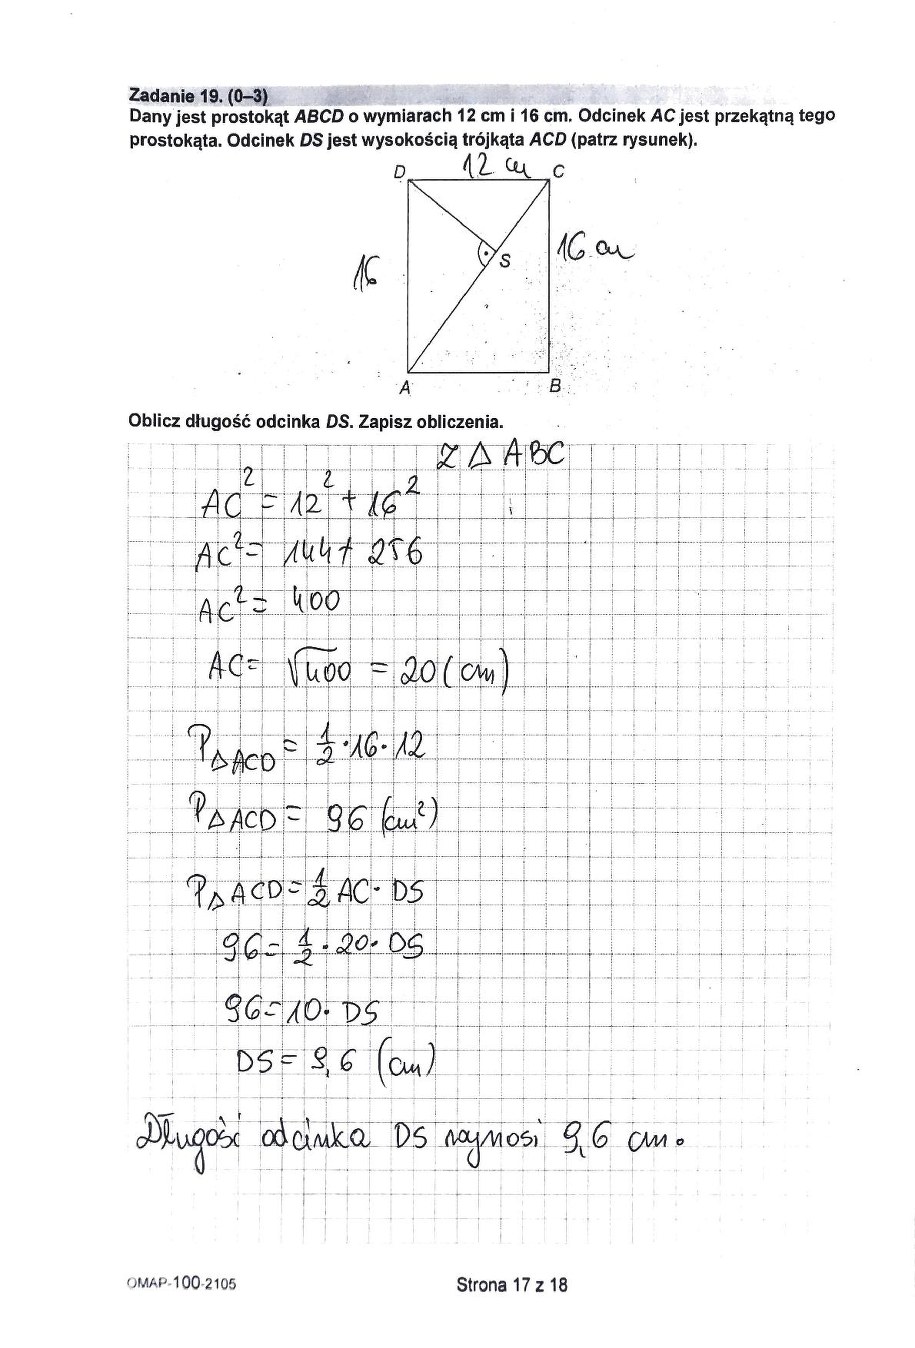 Zadanie 19. (0–3)
Dany jest prostokąt ABCD o wymiarach 12 cm i 16 cm. Odcinek AC jest przekątną tego
prostokąta. Odcinek DS jest wysokością trójkąta ACD (patrz rysunek).
D 12 cm C
16 S 16 cm
A B
Oblicz długość odcinka DS. Zapisz obliczenia.
Z △ ABC
AC² = 12² + 16²
AC² = 144 + 256
AC² = 400
AC = √400 = 20 (cm)
P△ACD = 1/2 · 16 · 12
P△ACD = 96 (cm²)
P△ACD = 1/2 AC · DS
96 = 1/2 · 20 · DS
96 = 10 · DS
DS = 9,6 (cm)
Długość odcinka DS wynosi 9,6 cm.
OMAP-100-2105 Strona 17 z 18